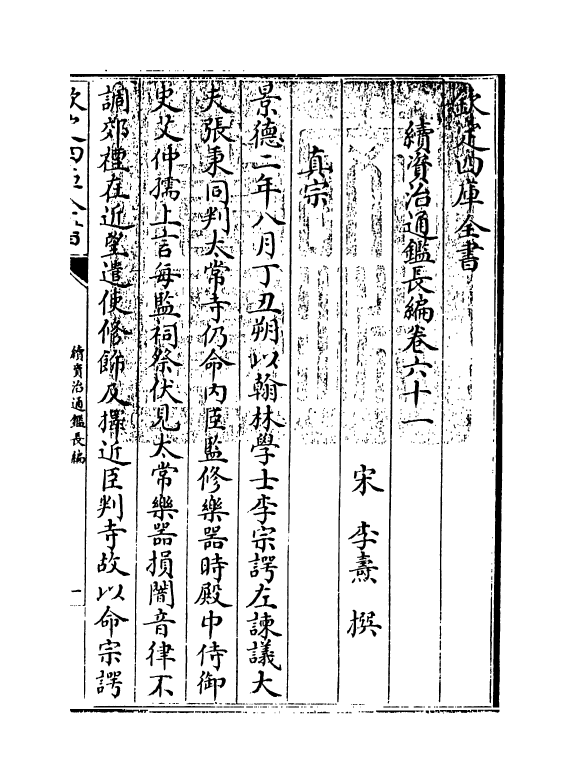 欽定四庫全書
續資治通鑑長編卷六十一
宋 李燾 撰
真宗
景德二年八月丁丑朔以翰林學士李宗諤左諫議大
夫張秉同判太常寺仍命内臣監修樂器時殿中侍御
史艾仲孺上言每監祠祭伏見太常樂器損闇音律不
調郊禮在近望遣使修飾及擇近臣判寺故以命宗諤
欽定四庫全書
續資治通鑑長編
一